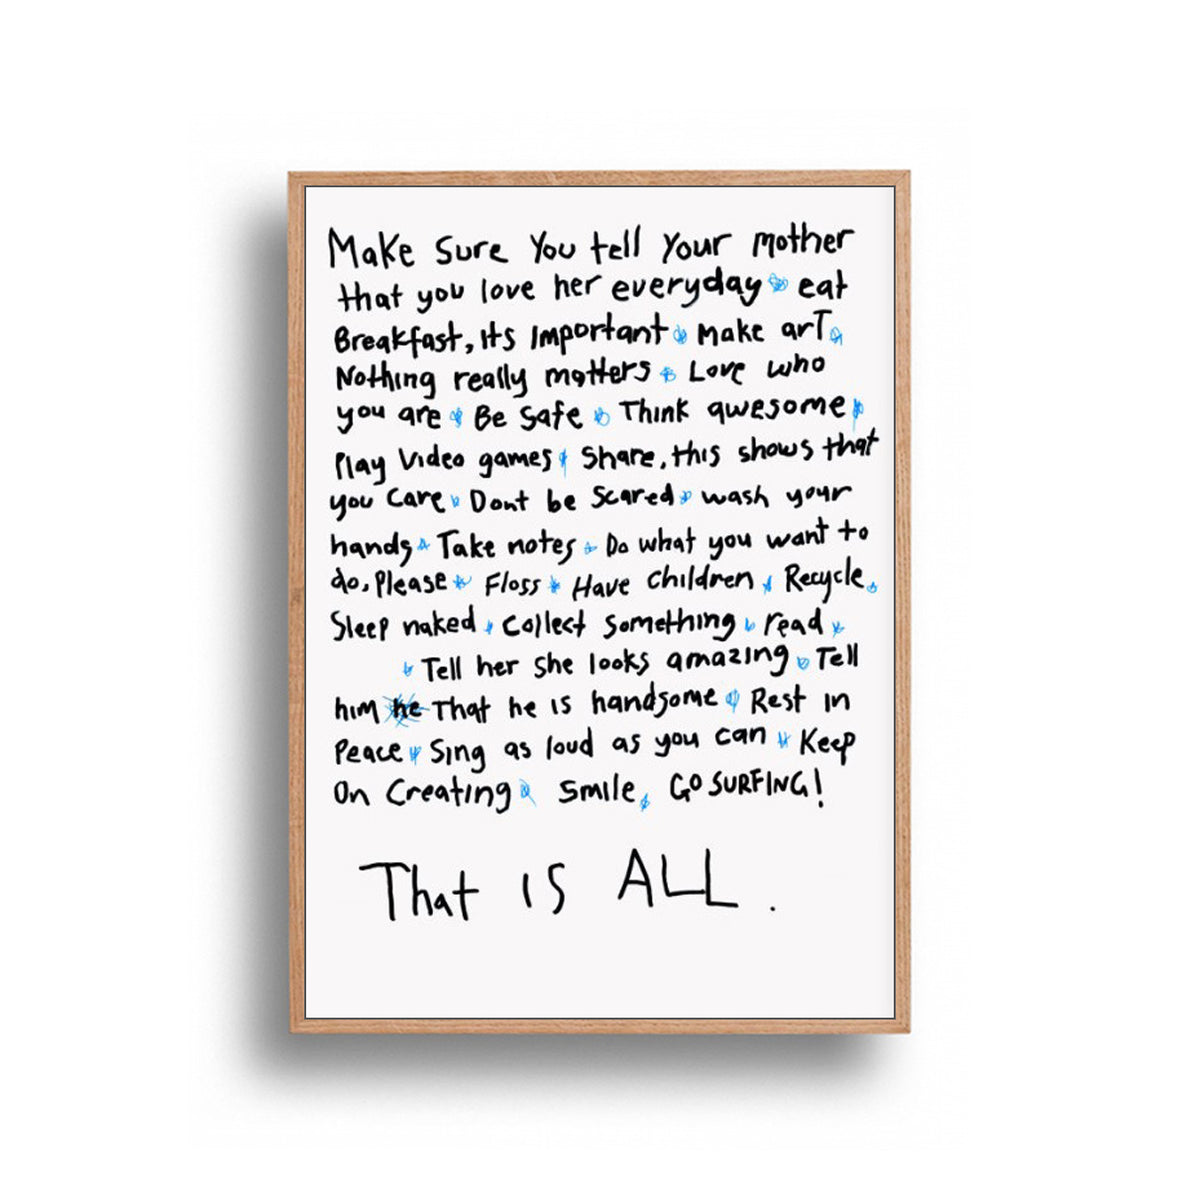 Make Sure You tell Your mother
that you love her everyday eat
Breakfast, its Important make arT
Nothing really matters Love who
you are Be Safe Think awesome
Play Video games Share, this shows that
you Care Dont be Scared wash your
hands Take notes Do what you want to
do, Please Floss Have children Recycle
Sleep naked Collect Something read
Tell her She looks amazing Tell
him he That he is handsome Rest in
Peace Sing as loud as you can Keep
On Creating Smile, GO SURFING!
That IS ALL.